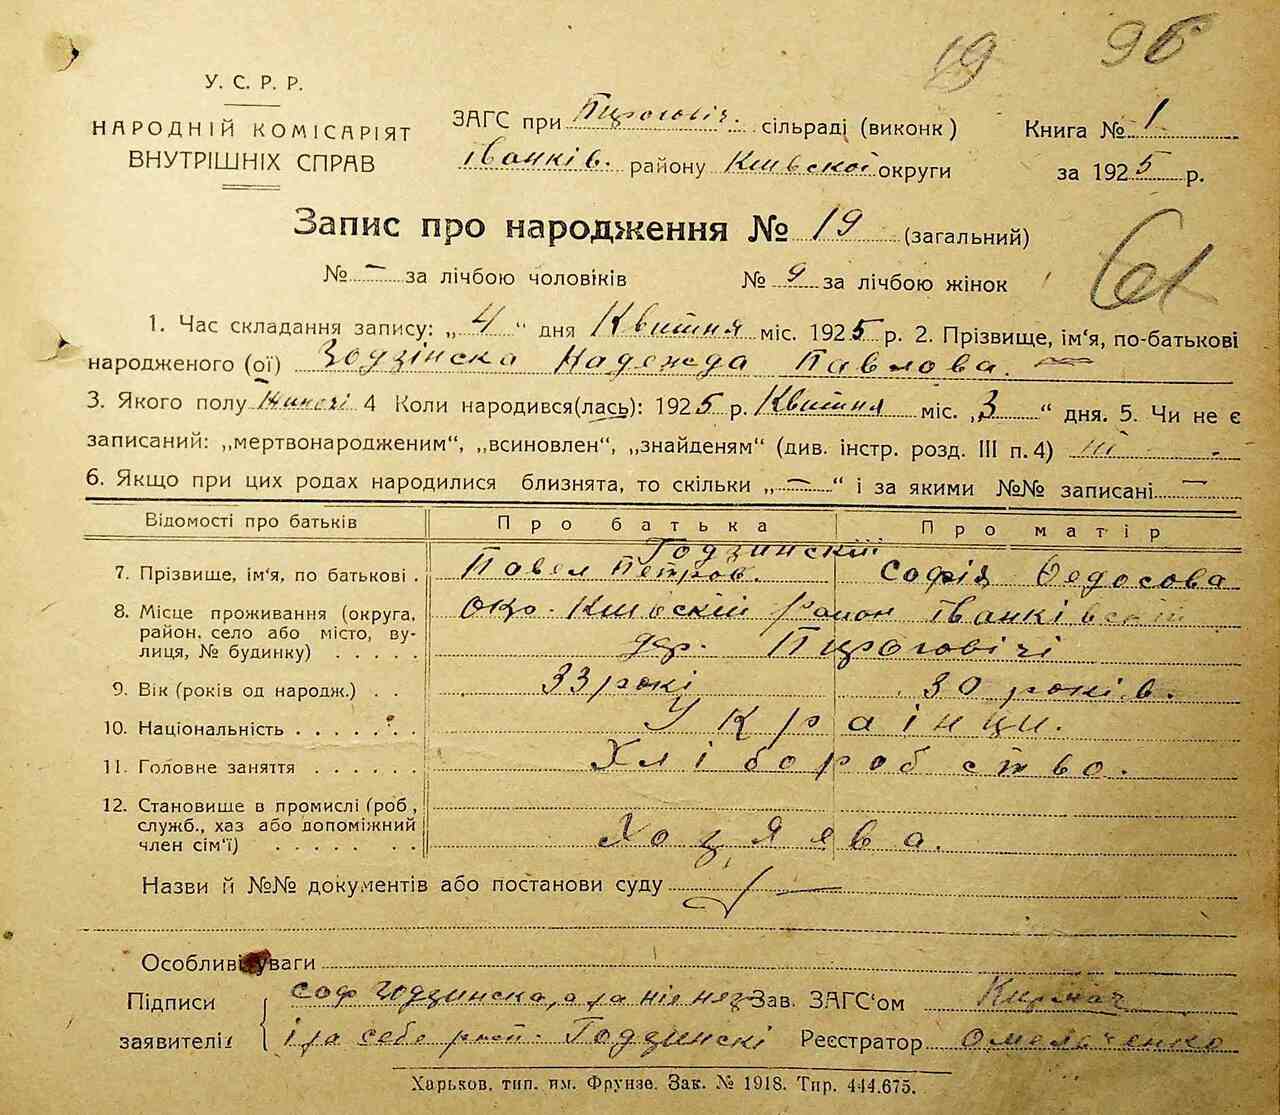 19 96
У. С. Р. Р.
НАРОДНІЙ КОМІСАРІЯТ
ВНУТРІШНІХ СПРАВ
ЗАГС при Пирогович. сільраді (виконк)
Іванків. району Київской округи
Книга № 1
за 1925 р.
Запис про народження № 19 (загальний)
№ – за лічбою чоловіків № 9 за лічбою жінок
61
1. Час складання запису: „4“ дня Квитня міс. 1925 р. 2. Прізвище, ім‘я, по-батькові
народженого (ої) Зодзінска Надежда Павлова.
3. Якого полу Жиночі 4 Коли народився(лась): 1925 р. Квитня міс. „3“ дня. 5. Чи не є
записаний: „мертвонародженим“, „всиновлен“, „знайденям“ (див. інстр. розд. III п. 4) ні
6. Якщо при цих родах народилися близнята, то скільки „–“ і за якими №№ записані –
Відомості про батьків Про батька Про матір
Годзинскій
7. Прізвище, ім‘я, по батькові . Павел Петров. Софія Федосова
8. Місце проживання (округа, окр. Київскій район Іванківскій
район, село або місто, ву-
лиця, № будинку) . . . . . дер. Пироговічі
9. Вік (років од народж.) . . 33 рокі 30 років.
10. Національність . . . . . . . Украінци.
11. Головне заняття . . . . . . Хліборобство.
12. Становище в промислі (роб,
служб., хаз або допоміжний
член сім‘ї) . . . . . . . Хозяява.
Назви й №№ документів або постанови суду –
Особливі уваги
Підписи Соф Годзинска, а за ніе нез Зав. ЗАГС‘ом
заявителів і за себе расп. Годзинскі Реєстратор Омельченко
Харьков, тип. им. Фрунзе. Зак. № 1918. Тир. 444.675.